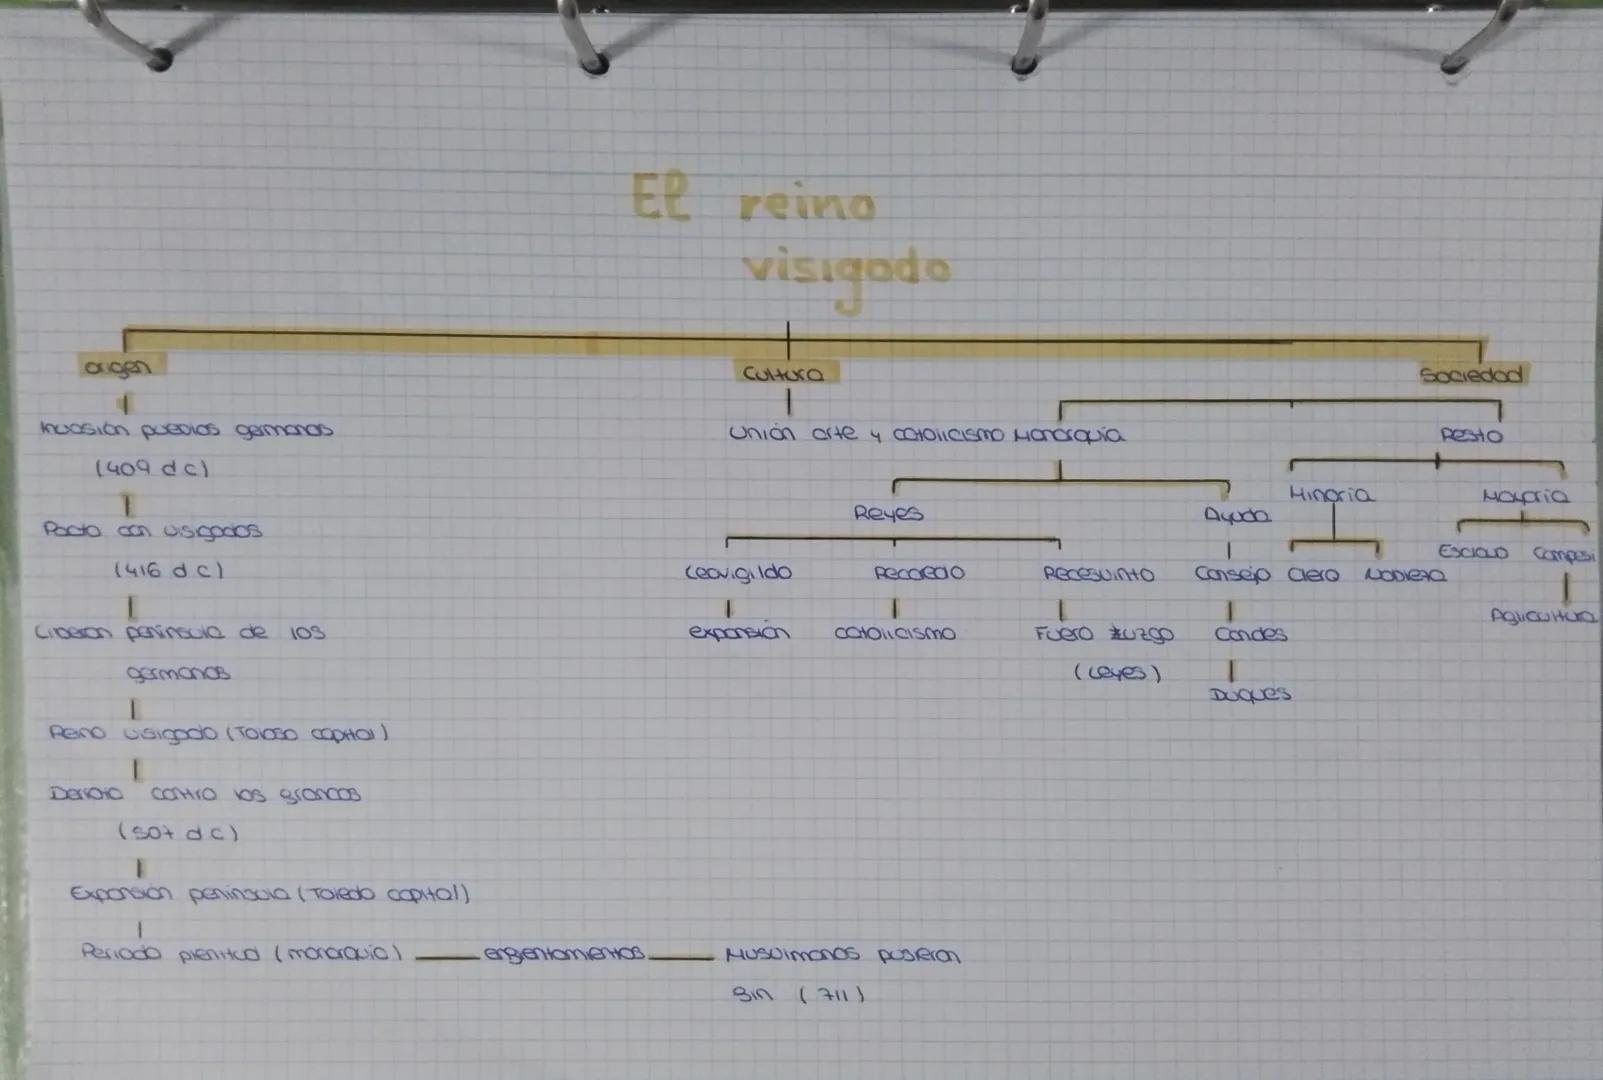 El reino
visigodo
origen
Cultura
Sociedad
Invasión pueblos germanos
(409 d c)
Pacto con visigodos
(416 d c)
Liberan península de los
germanos
Reino visigodo (Tolosa capital)
Derrota contra los francos
(507 d c)
Expansión península (Toledo capital)
Periodo plenitud (monarquía)
enfrentamientos
Musulmanes pusieron
fin (711)
Unión arte y catolicismo
Monarquía
Resto
Reyes
Ayuda
Minoria
Mayoria
Leovigildo
Recaredo
Recesvinto
Consejo
Clero
Nobleza
Esclavo
Campesi
expansión
catolicismo
Fuero Juzgo
(Leyes)
Condes
Duques
Agricultura